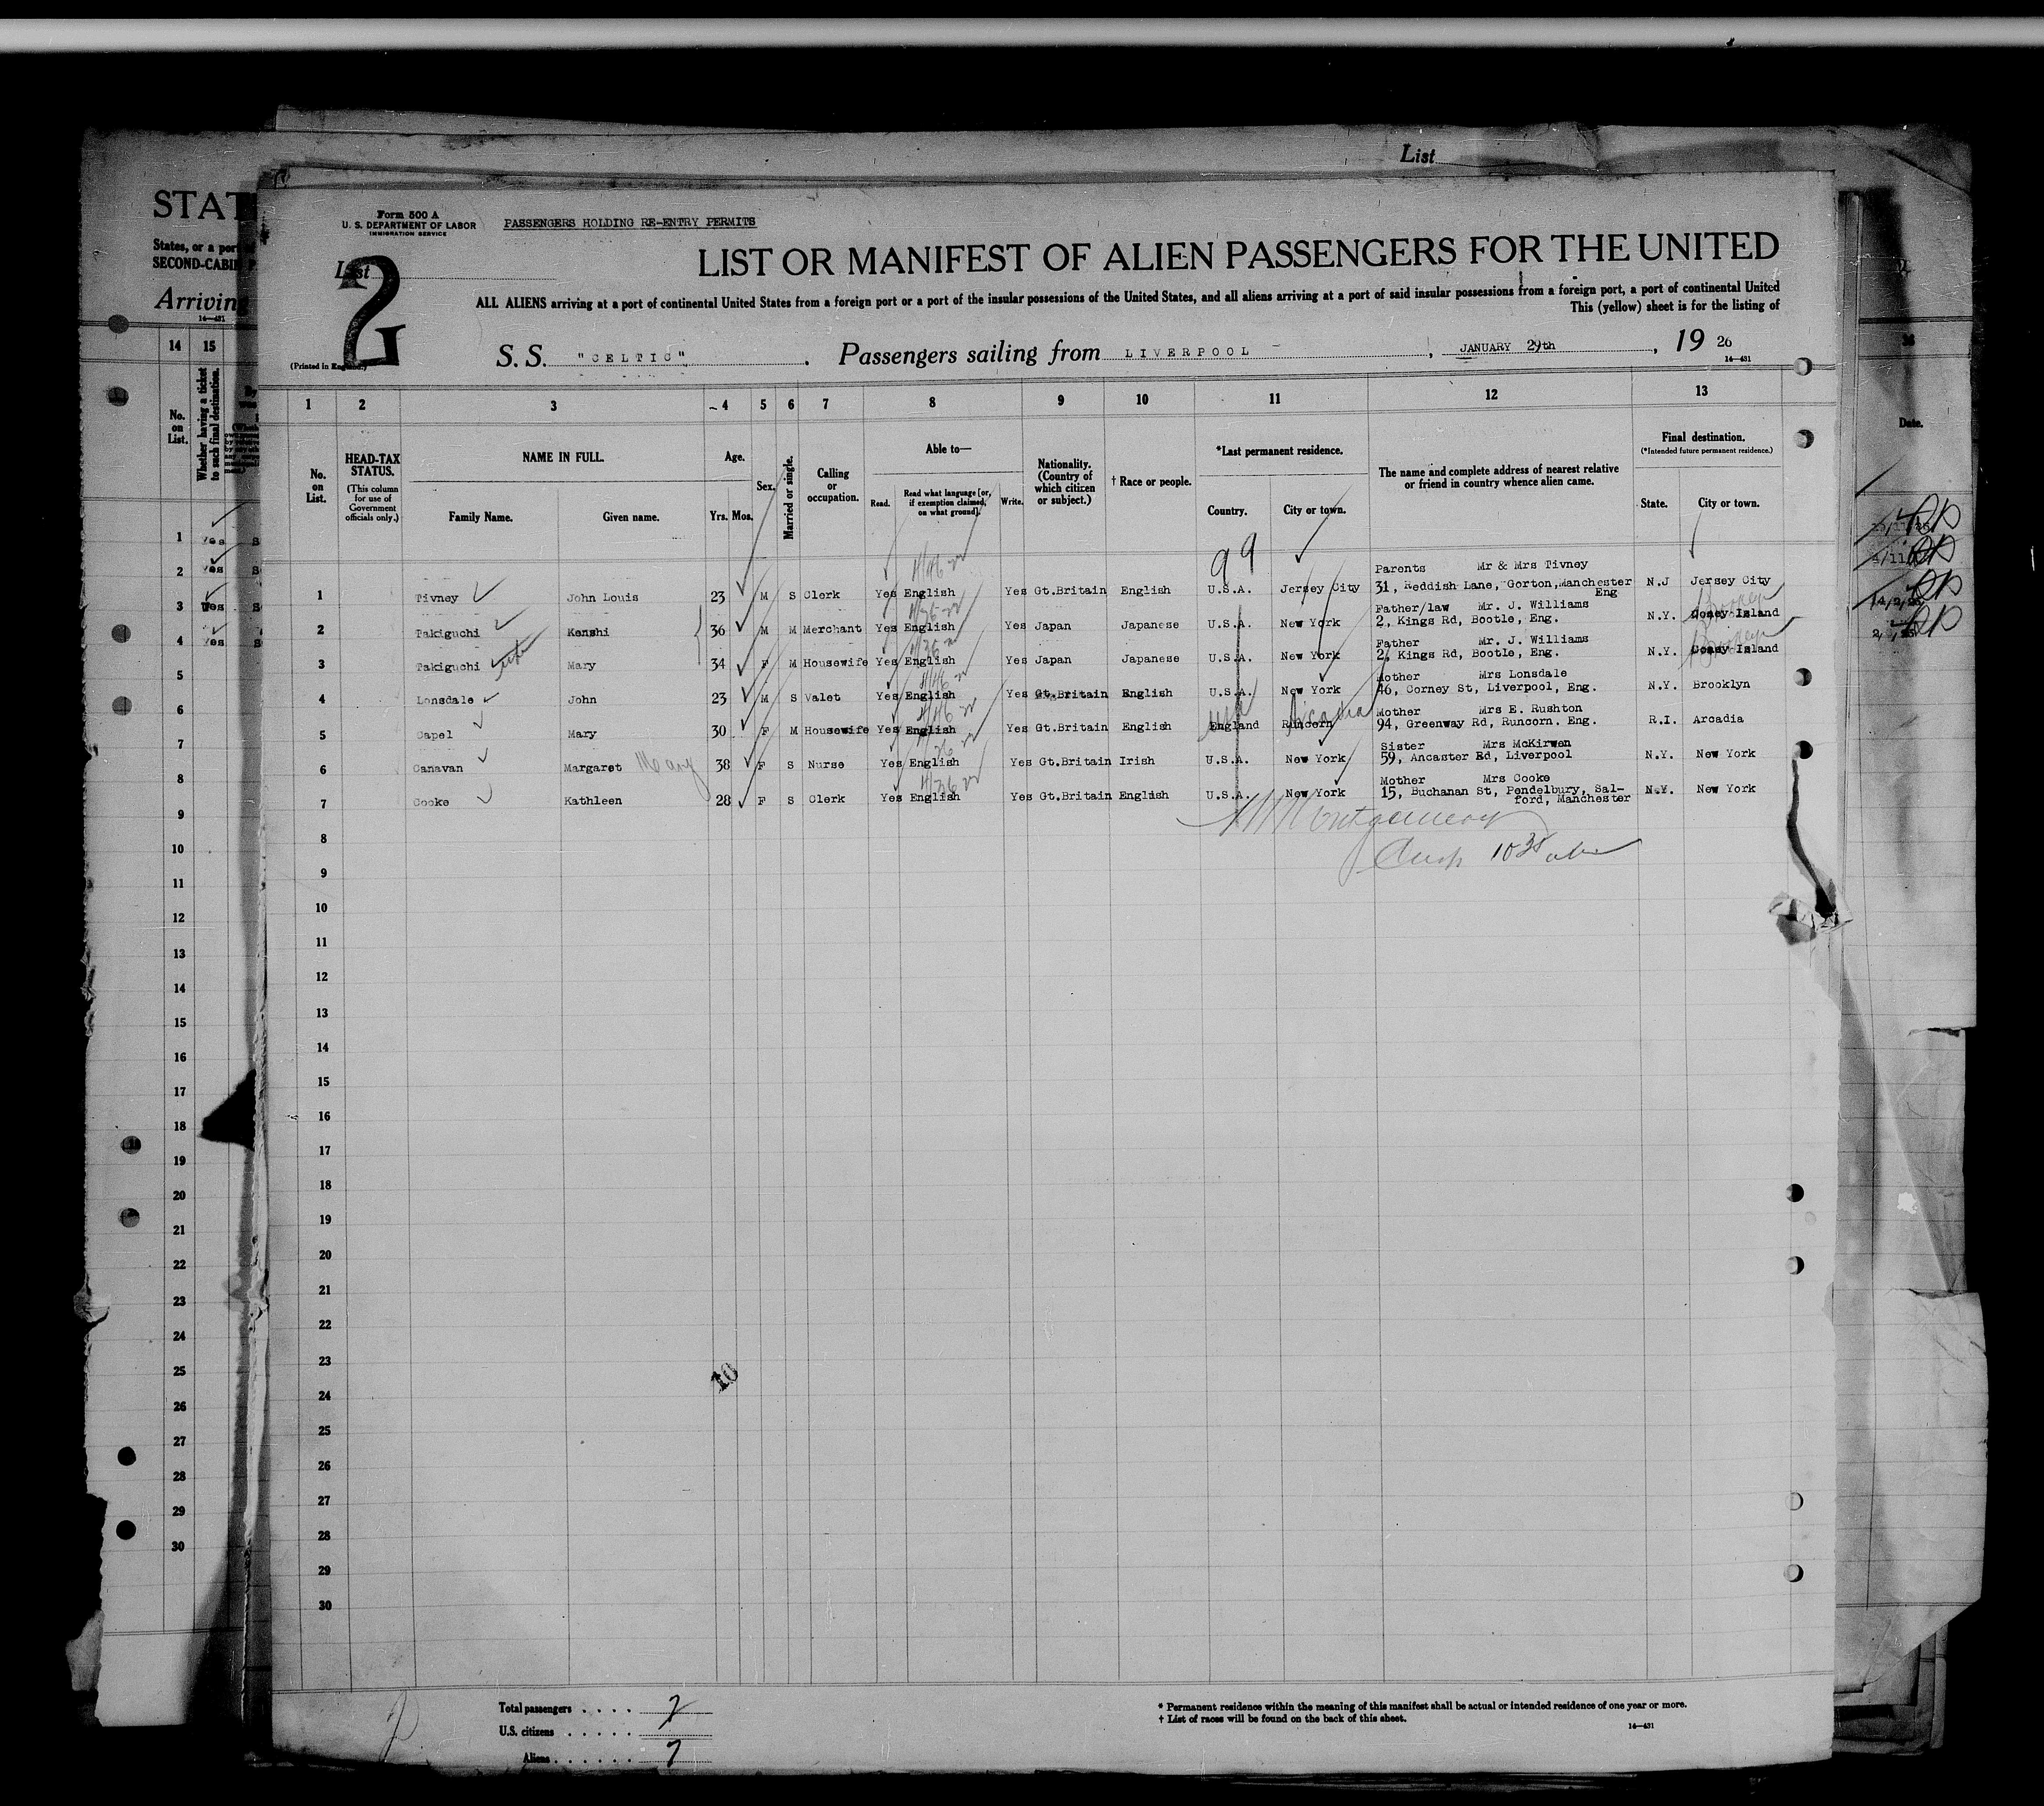 List
STAT
States, or a port
SECOND-CABIN
Arriving
14—431
Form 500 A
U. S. DEPARTMENT OF LABOR
IMMIGRATION SERVICE
PASSENGERS HOLDING RE-ENTRY PERMITS
List 2
LIST OR MANIFEST OF ALIEN PASSENGERS FOR THE UNITED
ALL ALIENS arriving at a port of continental United States from a foreign port or a port of the insular possessions of the United States, and all aliens arriving at a port of said insular possessions from a foreign port, a port of continental United
This (yellow) sheet is for the listing of
(Printed in England.)
S. S. "CELTIC", Passengers sailing from LIVERPOOL, JANUARY 29th, 19 26
14—431
1 2 3 4 5 6 7 8 9 10 11 12 13
No. on List.
HEAD-TAX STATUS.
(This column for use of Government officials only.)
NAME IN FULL.
Family Name. Given name.
Age.
Yrs. Mos.
Sex.
Married or single.
Calling or occupation.
Able to—
Read. Read what language [or, if exemption claimed, on what ground]. Write.
Nationality. (Country of which citizen or subject.)
† Race or people.
*Last permanent residence.
Country. City or town.
The name and complete address of nearest relative or friend in country whence alien came.
Final destination.
(*Intended future permanent residence.)
State. City or town.
99
1 Tivney John Louis 23 M S Clerk Yes English Yes Gt.Britain English U.S.A. Jersey City Parents Mr & Mrs Tivney 31, Reddish Lane, Gorton,Manchester Eng N.J Jersey City
2 Takiguchi Kenshi 36 M M Merchant Yes English Yes Japan Japanese U.S.A. New York Father/law Mr. J. Williams 2, Kings Rd, Bootle, Eng. N.Y. Coney Island Brooklyn
3 Takiguchi wife Mary 34 F M Housewife Yes English Yes Japan Japanese U.S.A. New York Father Mr. J. Williams 2, Kings Rd, Bootle, Eng. N.Y. Coney Island Brooklyn
4 Lonsdale John 23 M S Valet Yes English Yes Gt.Britain English U.S.A. New York Mother Mrs Lonsdale 46, Corney St, Liverpool, Eng. N.Y. Brooklyn
5 Capel Mary 30 F M Housewife Yes English Yes Gt.Britain English England USA Runcorn Arcadia Mother Mrs E. Rushton 94, Greenway Rd, Runcorn. Eng. R.I. Arcadia
6 Canavan Margaret Mary 38 F S Nurse Yes English Yes Gt.Britain Irish U.S.A. New York Sister Mrs McKirwen 59, Ancaster Rd, Liverpool N.Y. New York
7 Cooke Kathleen 28 F S Clerk Yes English Yes Gt.Britain English U.S.A. New York Mother Mrs Cooke 15, Buchanan St, Pendelbury, Sal-ford, Manchester N.Y. New York
Montgomery
8
9
10
11
12
13
14
15
16
17
18
19
20
21
22
23
24
25
26
27
28
29
30
10
Total passengers . . . . 7
U.S. citizens . . . . .
Aliens . . . . . . 7
* Permanent residence within the meaning of this manifest shall be actual or intended residence of one year or more.
† List of races will be found on the back of this sheet.
14—431
14 15
No. on List.
Whether having a ticket to such final destination.
1 Yes
2 Yes
3 Yes
4 Yes
5
6
7
8
9
10
11
12
13
14
15
16
17
18
19
20
21
22
23
24
25
26
27
28
29
30
Date.